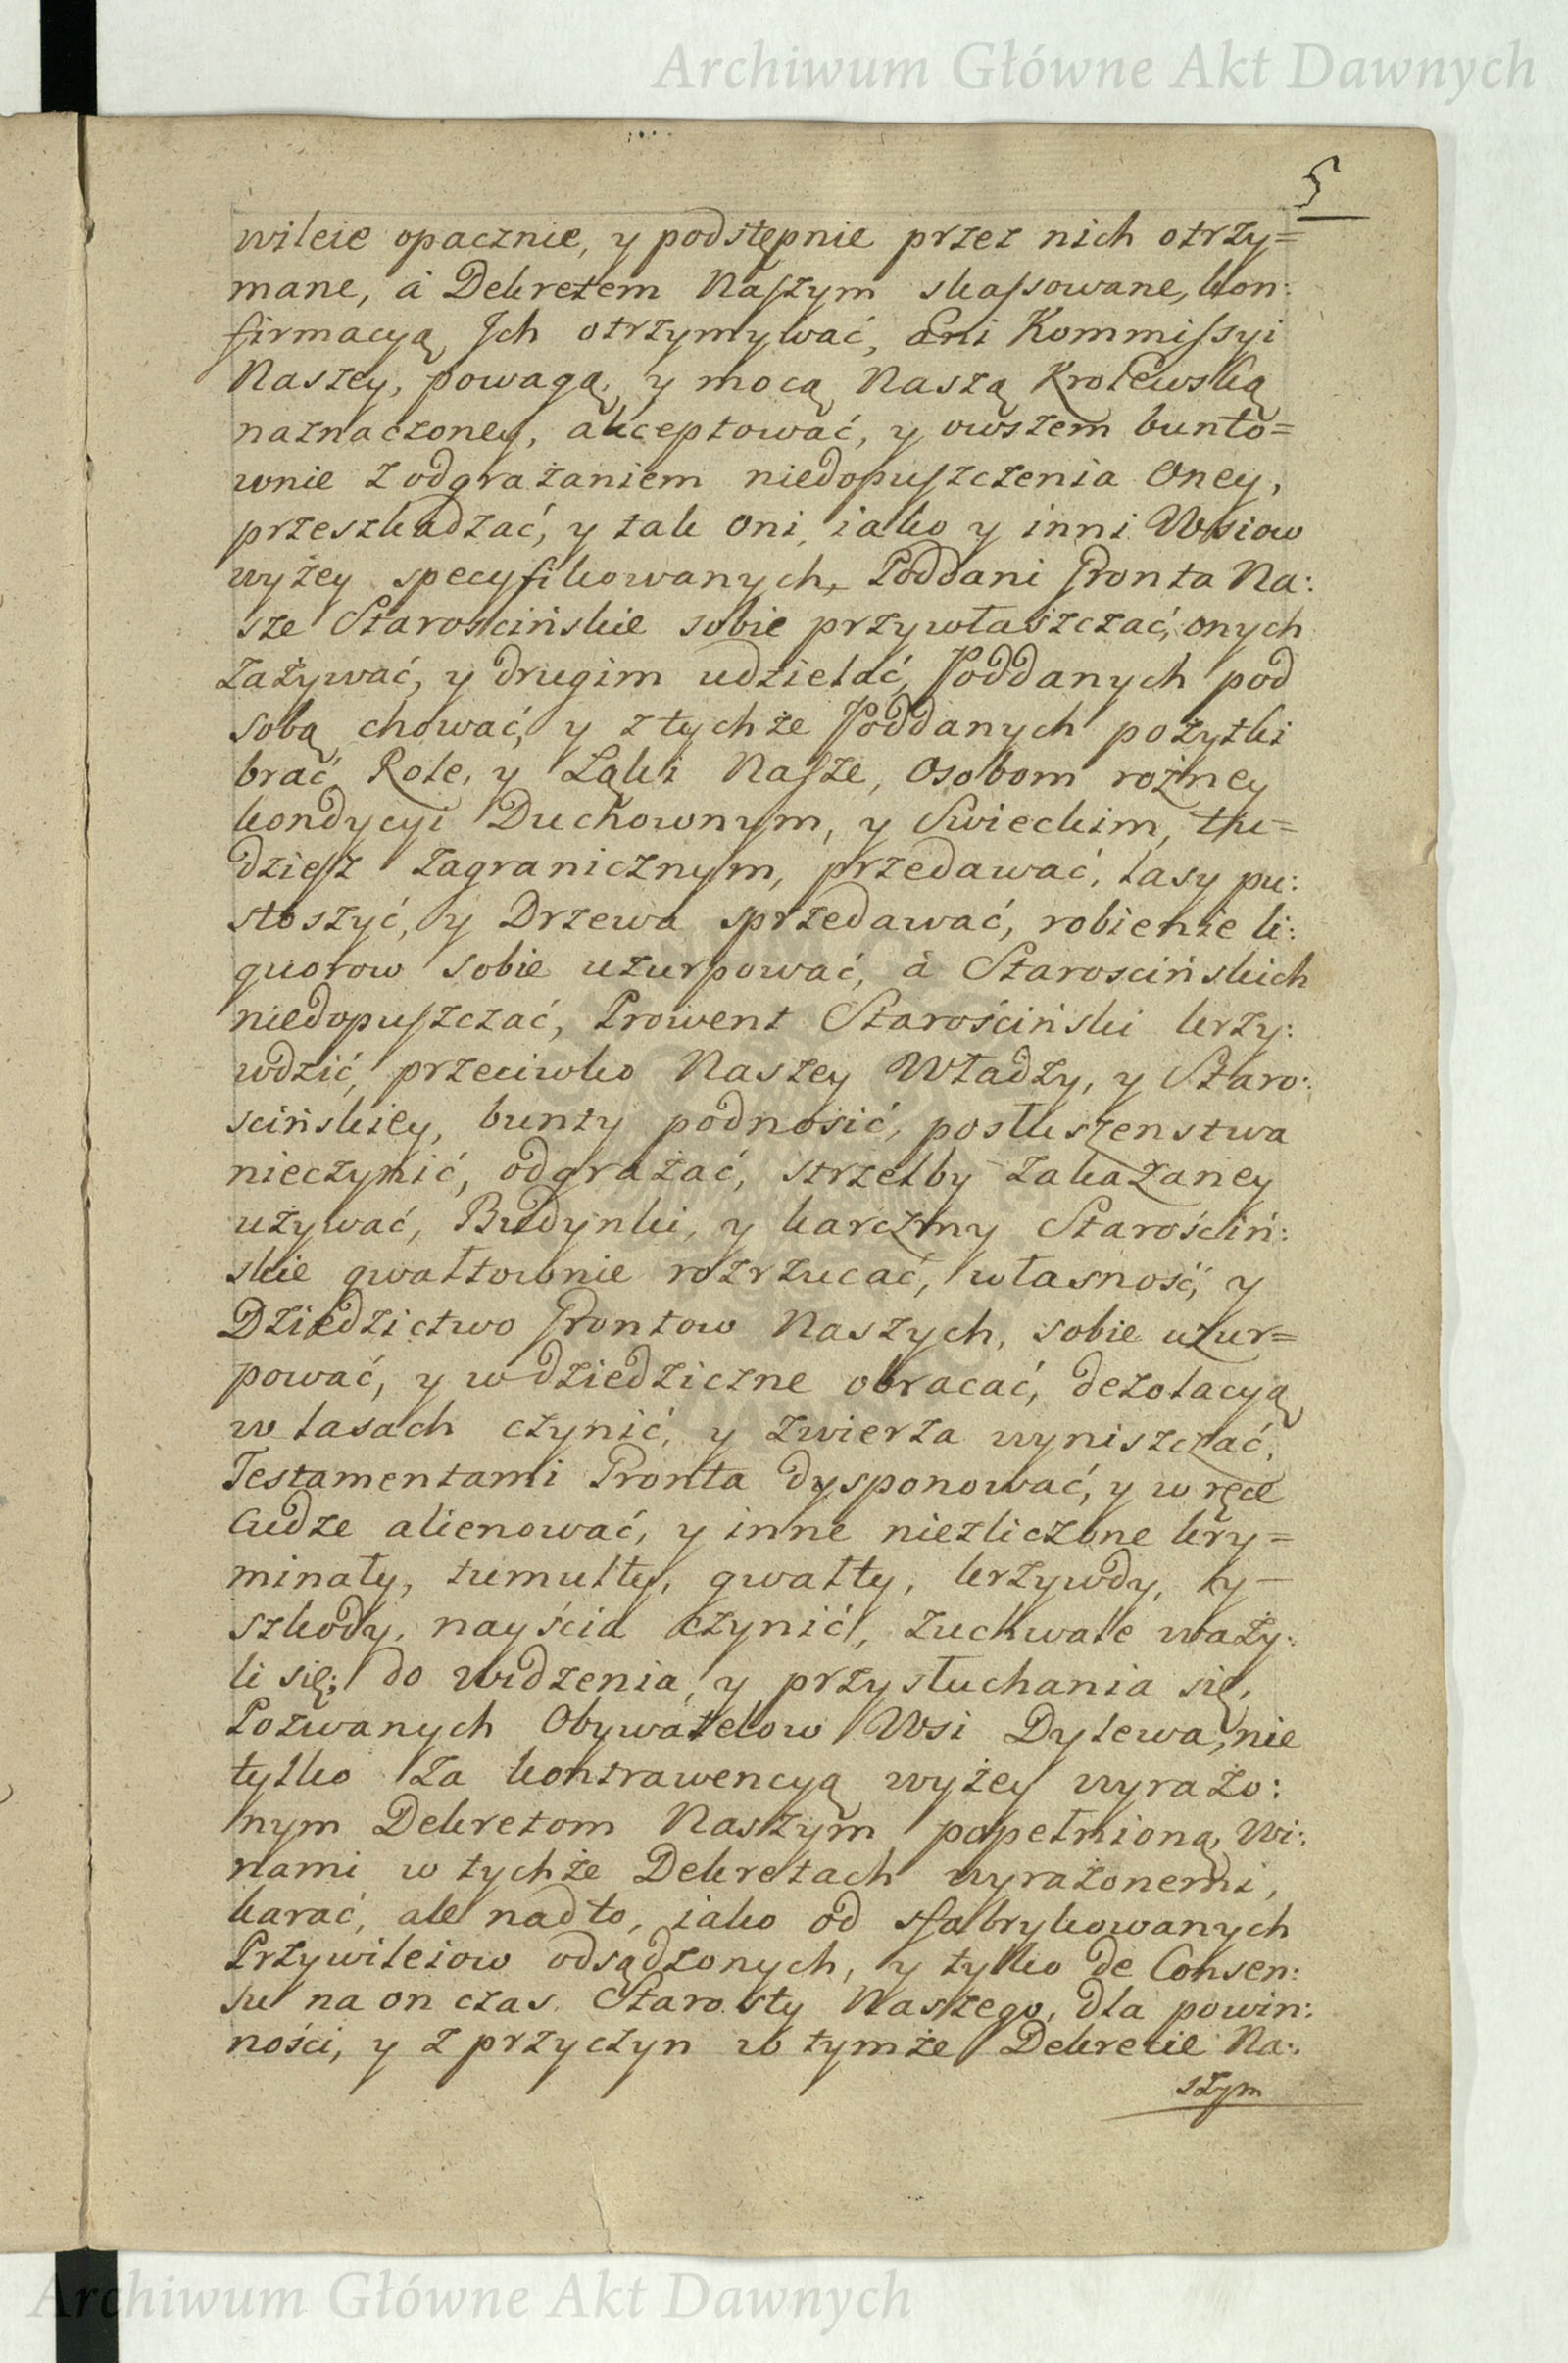 Archiwum Główne Akt Dawnych
5
wileie opacznie, y podstępnie przez nich otrzy=
mane, à Dekretem Naszym skassowane, kon:
firmacyą Jch otrzymywać, ani Kommissyi
Naszey, powagą, y mocą Naszą Krolewską
naznaczoney, akceptować, y owszem bunto=
wnie z odgrażaniem niedopuszczenia Oney,
przeszkadzać, y tak oni, iako y inni Wsiow
wyżey specyfikowanych, Poddani Gronta Na:
sze Starościńskie sobie przywłaszczać, onych
Zażywać, y drugim udzielać, Poddanych pod
sobą chować, y z tychże Poddanych pożytki
brać, Role, y Łąki Nasze, Osobom rożney
kondycyi Duchownym, y Swieckim, tu=
dziesz zagranicznym, przedawać, lasy pu:
stoszyć, y Drzewa sprzedawać, robienie li:
quorow sobie uzurpować, à Staroscińskich
niedopuszczać, Prowent Starościński krzy:
wdzić, przeciwko Naszey Władzy, y Staro:
scińskiey, bunty podnosić, posłuszenstwa
nieczynić, odgrażać, strzelby zakazaney
używać, Budynki, y karczmy Starościń:
skie gwałtownie rozrzucać, własność, y
Dziedzictwo Grontow Naszych, sobie uzur=
pować, y w dziedziczne obracać, dezolacyą
w lasach czynić, y zwierza wyniszczać,
Testamentami Gronta dysponować, y w ręce
Cudze alienować, y inne niezliczone kry=
minały, tumulty, gwałty, krzywdy, y
szkody, nayścia czynić, zuchwale waży:
li się; do widzenia, y przysłuchania się,
Pozwanych Obywatelow Wsi Dylewa, nie
tylko za kontrawencyą wyżey wyrażo:
nym Dekretom Naszym popełnioną, Wi:
nami w tychże Dekretach wyrażonemi,
karać, ale nadto, iako od sfabrykowanych
Przywileiow odsądzonych, y tylko de Consen:
su na on czas Starosty Naszego, dla powin:
ności, y z przyczyn w tymże Dekrecie Na:
szym
Archiwum Główne Akt Dawnych